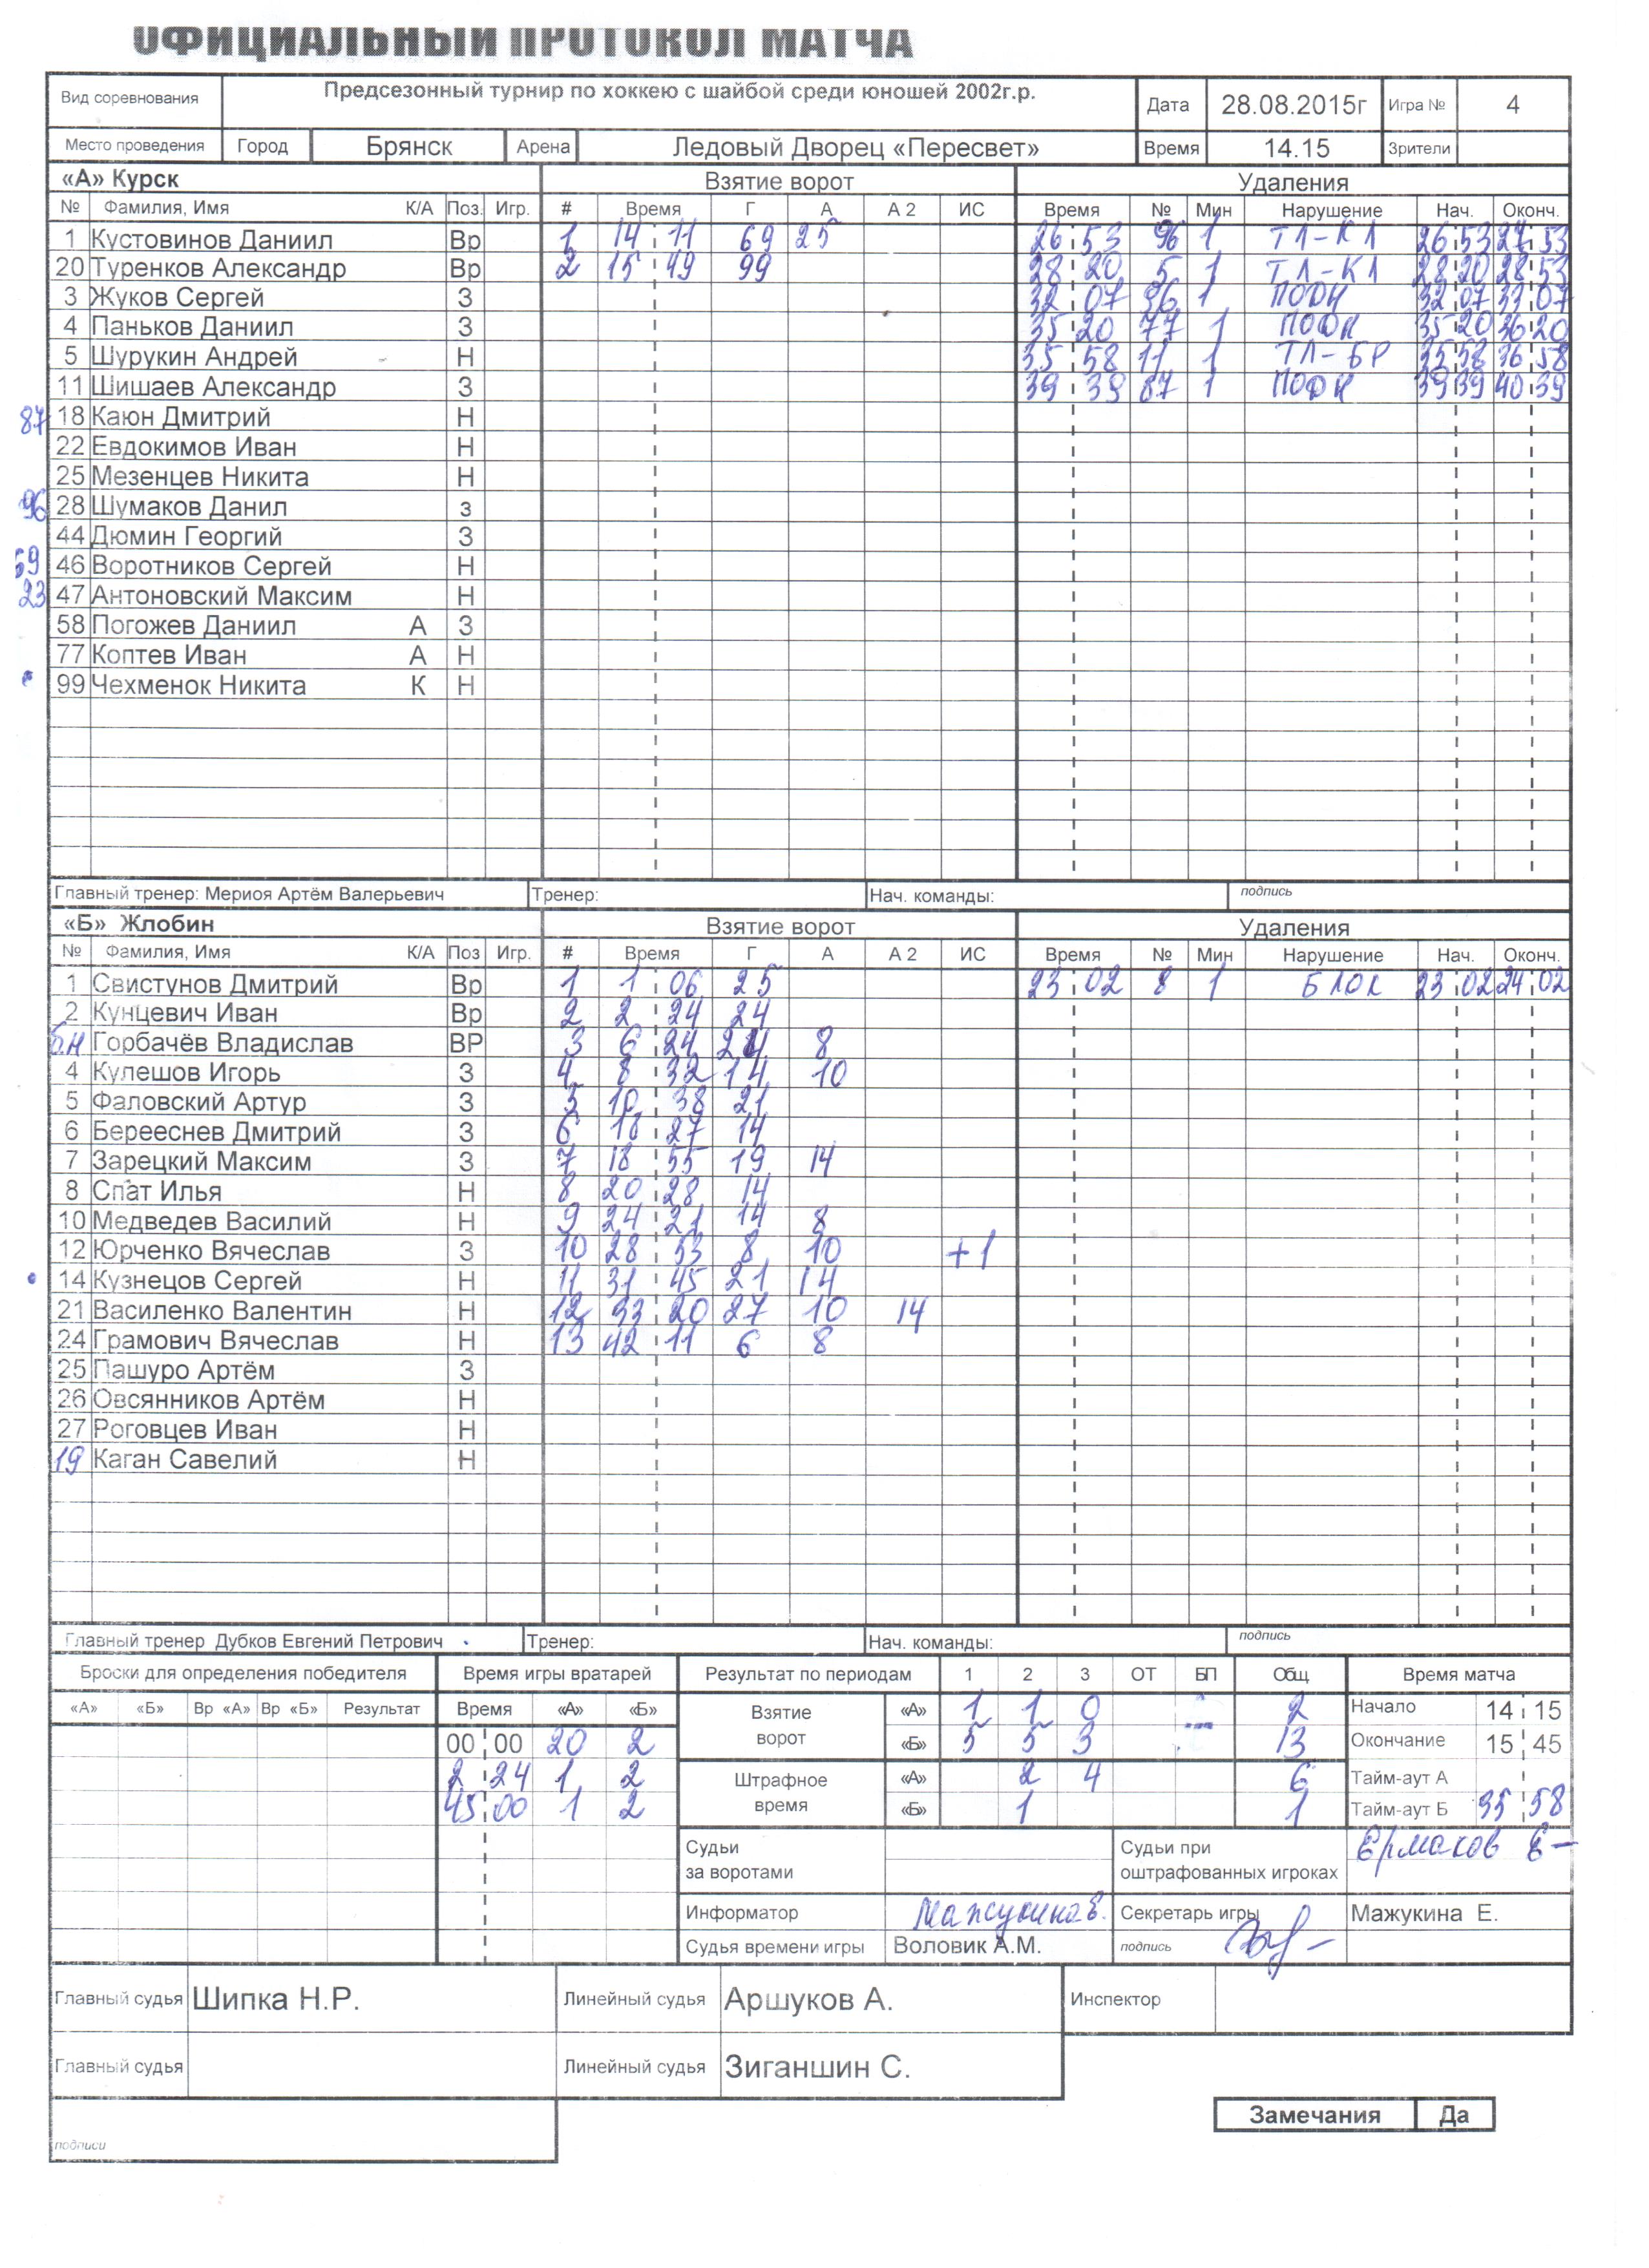 ОФИЦИАЛЬНЫЙ ПРОТОКОЛ МАТЧА
Вид соревнования Предсезонный турнир по хоккею с шайбой среди юношей 2002г.р. Дата 28.08.2015г Игра № 4
Место проведения Город Брянск Арена Ледовый Дворец «Пересвет» Время 14.15 Зрители
«А» Курск Взятие ворот Удаления
№ Фамилия, Имя К/А Поз. Игр. # Время Г А А 2 ИС Время № Мин Нарушение Нач. Оконч.
1 Кустовинов Даниил Вр 1 14 11 69 25 26 53 96 1 ТЛ-КЛ 26 53 27 53
20 Туренков Александр Вр 2 15 49 99 28 20 5 1 ТЛ-КЛ 28 20 28 53
3 Жуков Сергей З 32 07 96 1 ПОДН 32 07 33 07
4 Паньков Даниил З 35 20 77 1 ПОДН 35 20 36 20
5 Шурукин Андрей Н 35 58 11 1 ТЛ-БР 35 58 36 58
11 Шишаев Александр З 39 39 87 1 ПОДН 39 39 40 39
87 18 Каюн Дмитрий Н
22 Евдокимов Иван Н
25 Мезенцев Никита Н
96 28 Шумаков Данил з
44 Дюмин Георгий З
69 46 Воротников Сергей Н
23 47 Антоновский Максим Н
58 Погожев Даниил А З
77 Коптев Иван А Н
99 Чехменок Никита К Н
Главный тренер: Мериоя Артём Валерьевич Тренер: Нач. команды: подпись
«Б» Жлобин Взятие ворот Удаления
№ Фамилия, Имя К/А Поз Игр. # Время Г А А 2 ИС Время № Мин Нарушение Нач. Оконч.
1 Свистунов Дмитрий Вр 1 1 06 25 23 02 8 1 БЛОК 23 02 24 02
2 Кунцевич Иван Вр 2 2 24 24
б.н Горбачёв Владислав ВР 3 6 24 24 8
4 Кулешов Игорь З 4 8 32 14 10
5 Фаловский Артур З 5 10 38 21
6 Берееснев Дмитрий З 6 18 27 14
7 Зарецкий Максим З 7 18 55 19 14
8 Спат Илья Н 8 20 28 14
10 Медведев Василий Н 9 24 21 14 8
12 Юрченко Вячеслав З 10 28 53 8 10 +1
14 Кузнецов Сергей Н 11 31 45 21 14
21 Василенко Валентин Н 12 33 20 27 10 14
24 Грамович Вячеслав Н 13 42 11 6 8
25 Пашуро Артём З
26 Овсянников Артём Н
27 Роговцев Иван Н
19 Каган Савелий Н
Главный тренер Дубков Евгений Петрович Тренер: Нач. команды: подпись
Броски для определения победителя Время игры вратарей Результат по периодам 1 2 3 ОТ БП Общ Время матча
«А» «Б» Вр «А» Вр «Б» Результат Время «А» «Б» Взятие ворот «А» 1 1 0 2 Начало 14 15
00 00 20 2 «Б» 5 5 3 13 Окончание 15 45
2 24 1 2 Штрафное время «А» 2 4 6 Тайм-аут А
45 00 1 2 «Б» 1 1 Тайм-аут Б 35 58
Судьи за воротами Судьи при оштрафованных игроках Ермаков Е
Информатор Мажукина Е. Секретарь игры Мажукина Е.
Судья времени игры Воловик А.М. подпись
Главный судья Шипка Н.Р. Линейный судья Аршуков А. Инспектор
Главный судья Линейный судья Зиганшин С.
Замечания Да
подписи